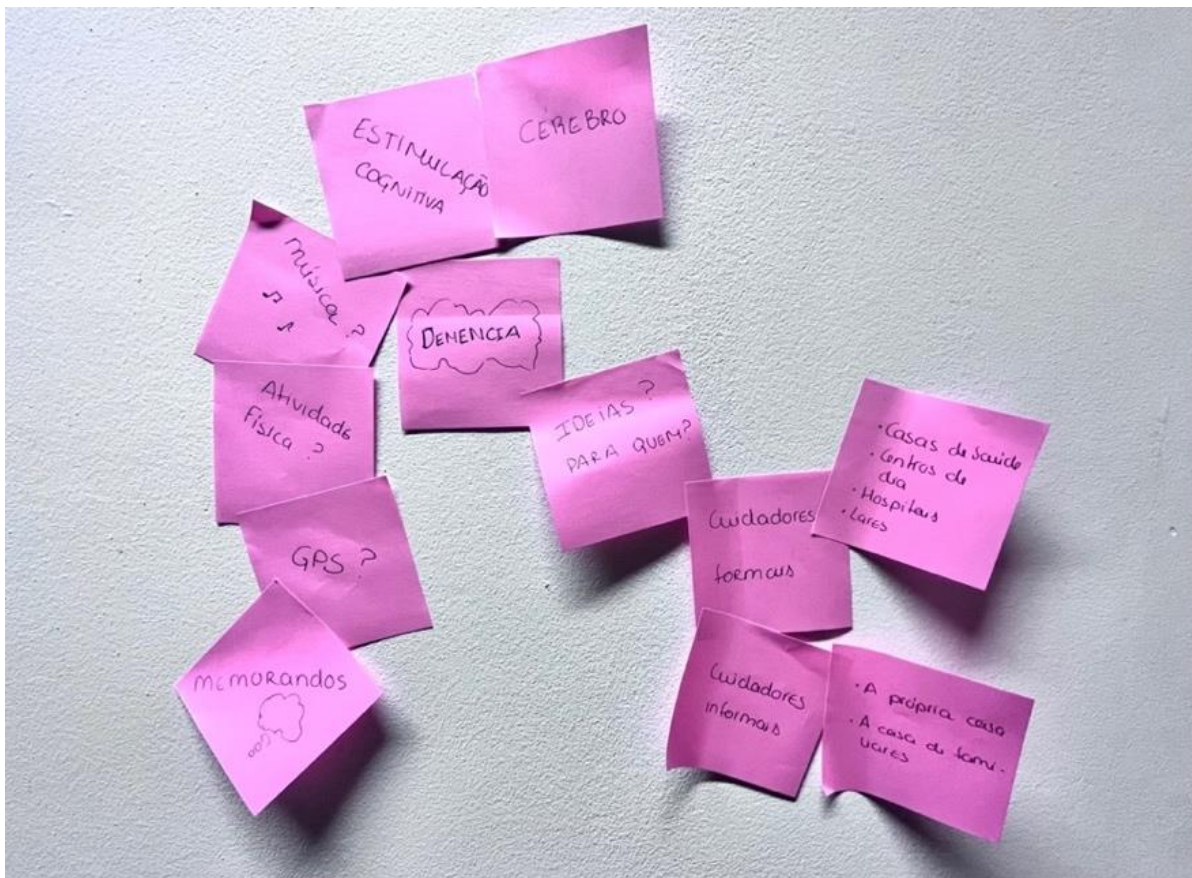 ESTIMULAÇÃO
COGNITIVA
CÉREBRO
música ?
DEMENCIA
Atividade
Física ?
IDEIAS ?
PARA QUEM?
GPS ?
MEMORANDOS
Cuidadores
formais
• Casas de Saúde
• Centros de
dia
• Hospitais
• Lares
Cuidadores
informais
• A própria casa
• A casa de fami-
liares